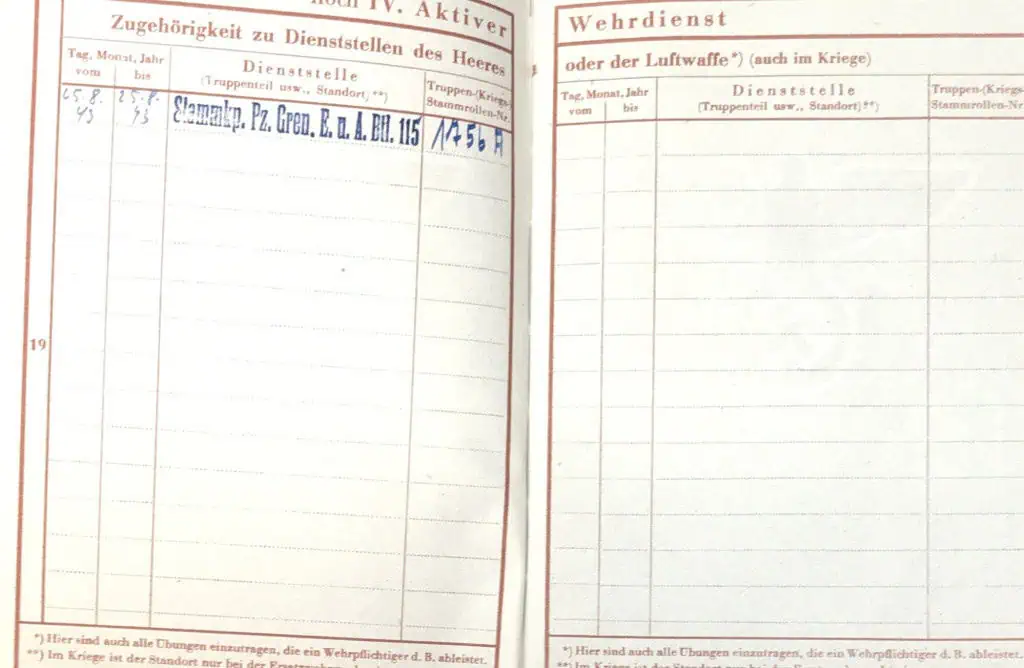 noch IV. Aktiver
Zugehörigkeit zu Dienststellen des Heeres
Tag, Monat, Jahr
vom bis
Dienststelle
(Truppenteil usw., Standort)**)
Truppen-(Kriegs-)
Stammrollen-Nr.
25.8. 25.8.
43 43
Stammkp. Pz. Gren. E. u. A. Btl. 115
1756 A
19
*) Hier sind auch alle Übungen einzutragen, die ein Wehrpflichtiger d. B. ableistet.
**) Im Kriege ist der Standort nur bei der
Wehrdienst
oder der Luftwaffe*) (auch im Kriege)
Tag, Monat, Jahr
vom bis
Dienststelle
(Truppenteil usw., Standort)**)
Truppen-(Kriegs-
Stammrollen-Nr.
*) Hier sind auch alle Übungen einzutragen, die ein Wehrpflichtiger d. B. ableistet.
**) Im Kriege ist der Standort nur bei der